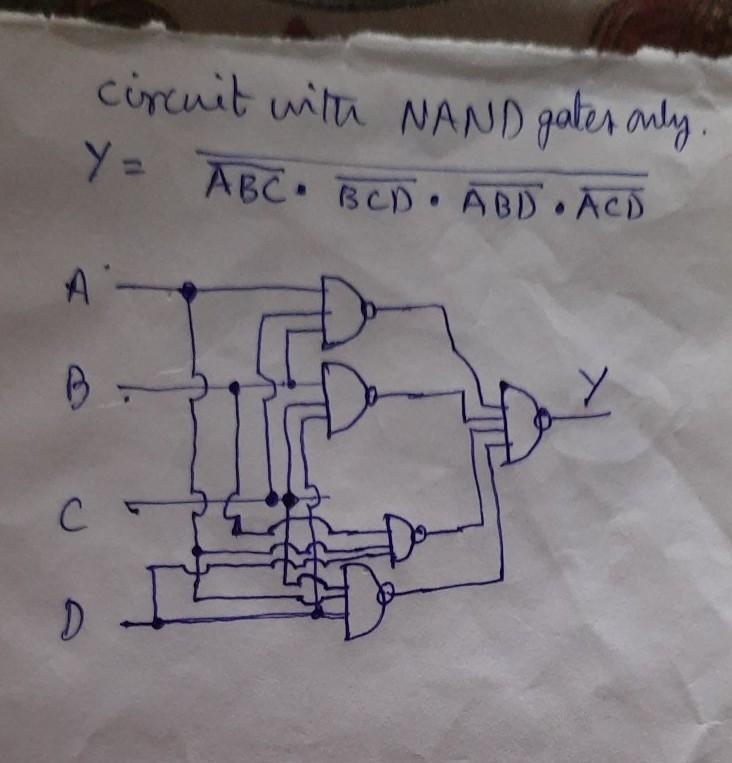 circuit with NAND gates only.
Y = \overline{\overline{ABC} \cdot \overline{BCD} \cdot \overline{ABD} \cdot \overline{ACD}}
A
B
Y
C
D